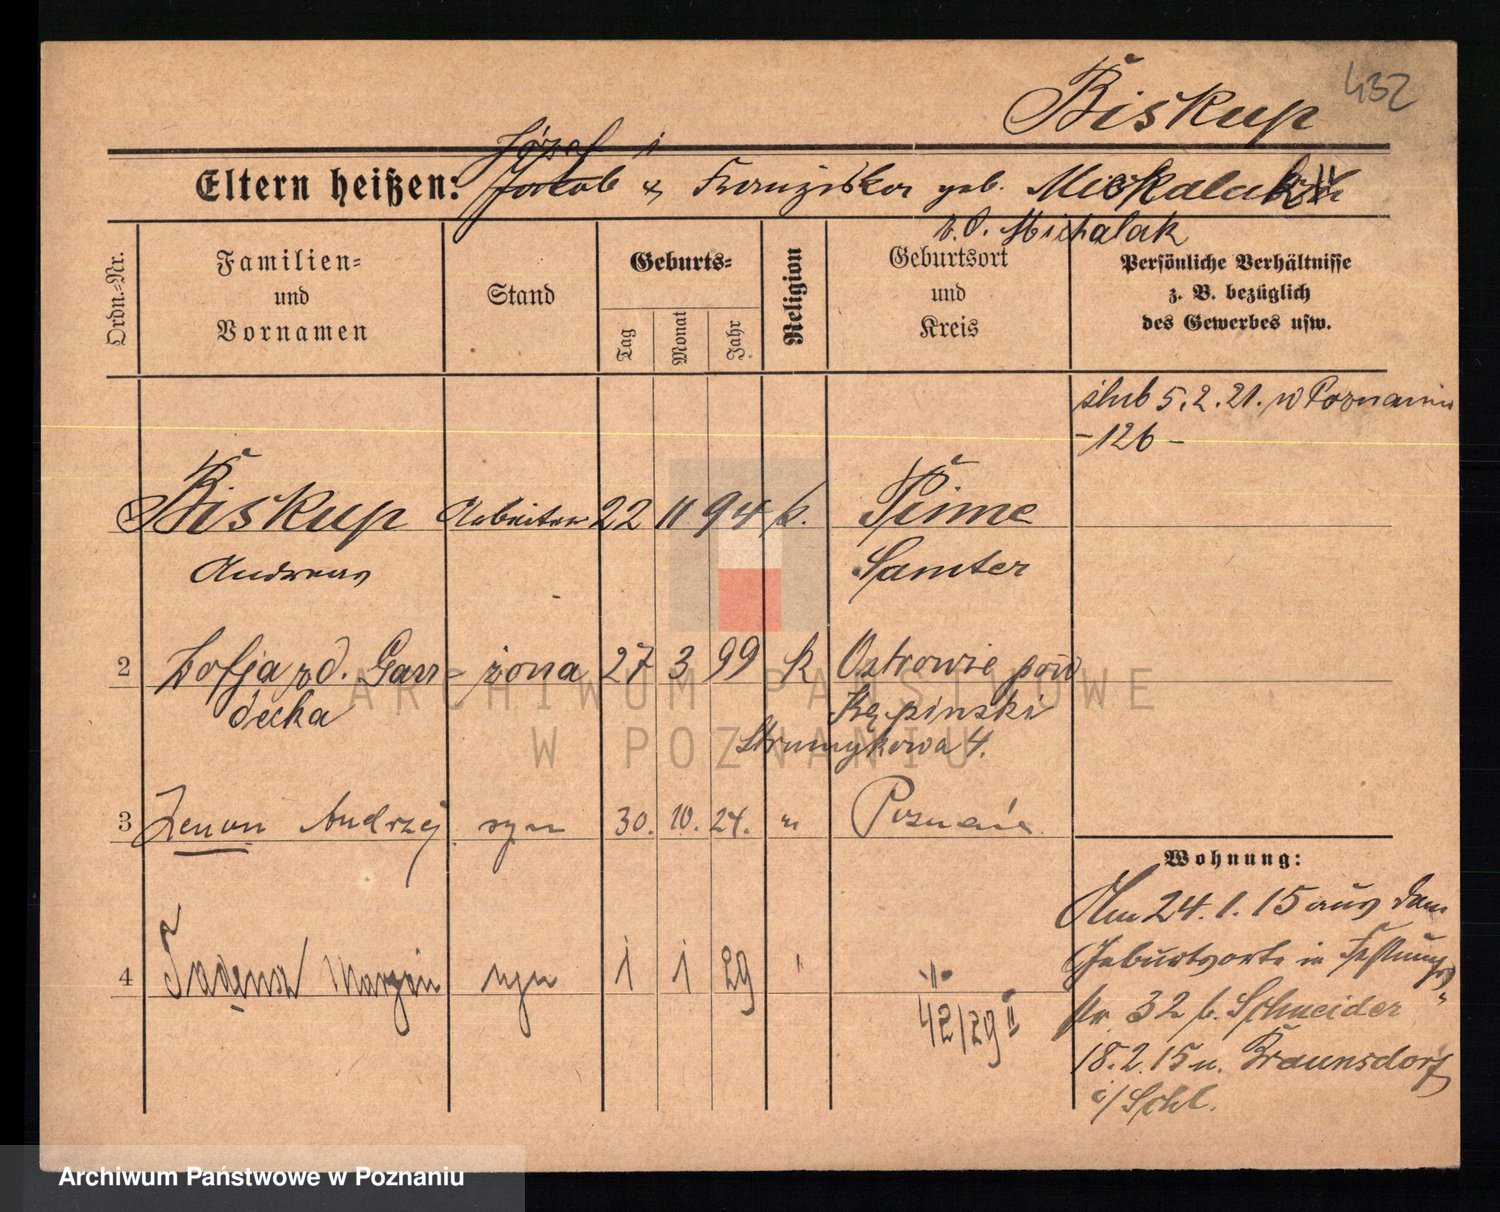 432
Biskup
Józef i
Eltern heißen: Jakob & Franziska geb. Mickalak
v. d. Michalak
Ordn.-Nr.
Familien-
und
Vornamen
Stand
Geburts-
Tag
Monat
Jahr
Religion
Geburtsort
und
Kreis
Persönliche Verhältnisse
z. B. bezüglich
des Gewerbes usw.
ślub 5.2.21. w Poznaniu
-126-
1 Biskup Arbeiter 22 11 94 k. Pinne
Andreas Samter
2 Zofja zd. Garn- żona 27 3 99 k Ostrowie pow
decka Kępiński
Strumykowa 4.
3 Zenon Andrzej syn 30. 10. 24. " Poznań
4 Tadeusz Marjan syn 1 1 29 " "
42/29 II
Wohnung:
Am 24.1.15 aus dem
Geburtsorte in Festungs
str. 32 b. Schneider
18.2.15 n. Braunsdorf
i/Schl.
ARCHIWUM PAŃSTWOWE
W POZNANIU
Archiwum Państwowe w Poznaniu